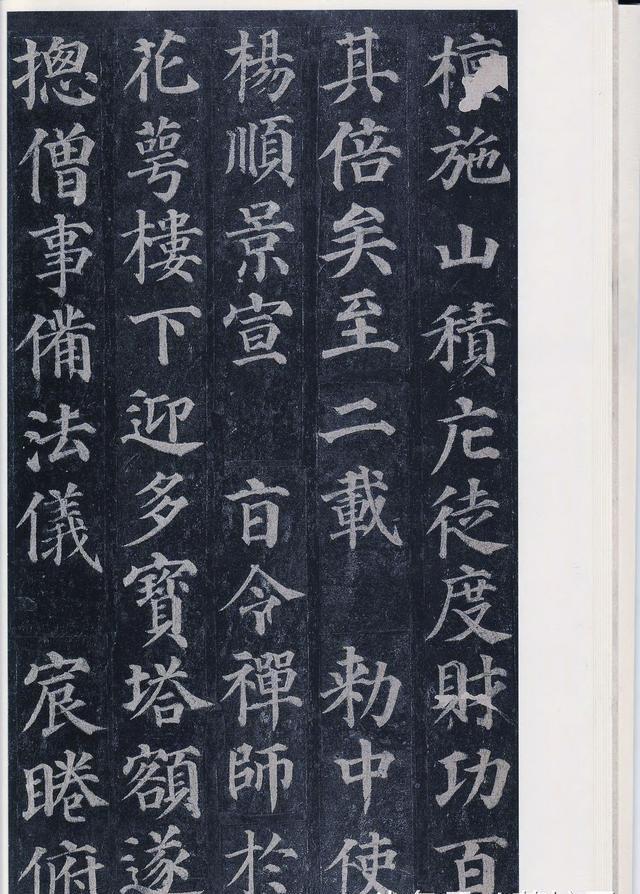 檀施山積庀徒度財功百
其倍矣至二載勅中使
楊順景宣㫖令禪師於
花萼樓下迎多寳塔額遂
揔僧事備法儀宸睠俯